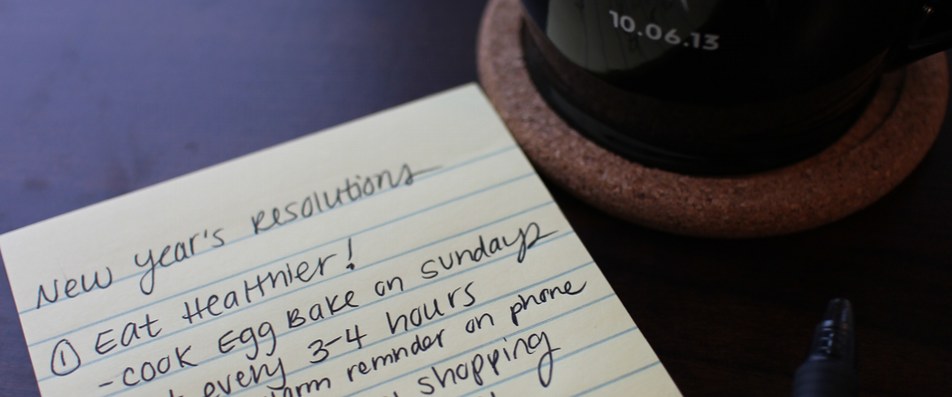 10.06.13
New Year's Resolutions
① Eat Healthier!
- cook Egg Bake on sundays
every 3-4 hours
remnder on phone
shopping